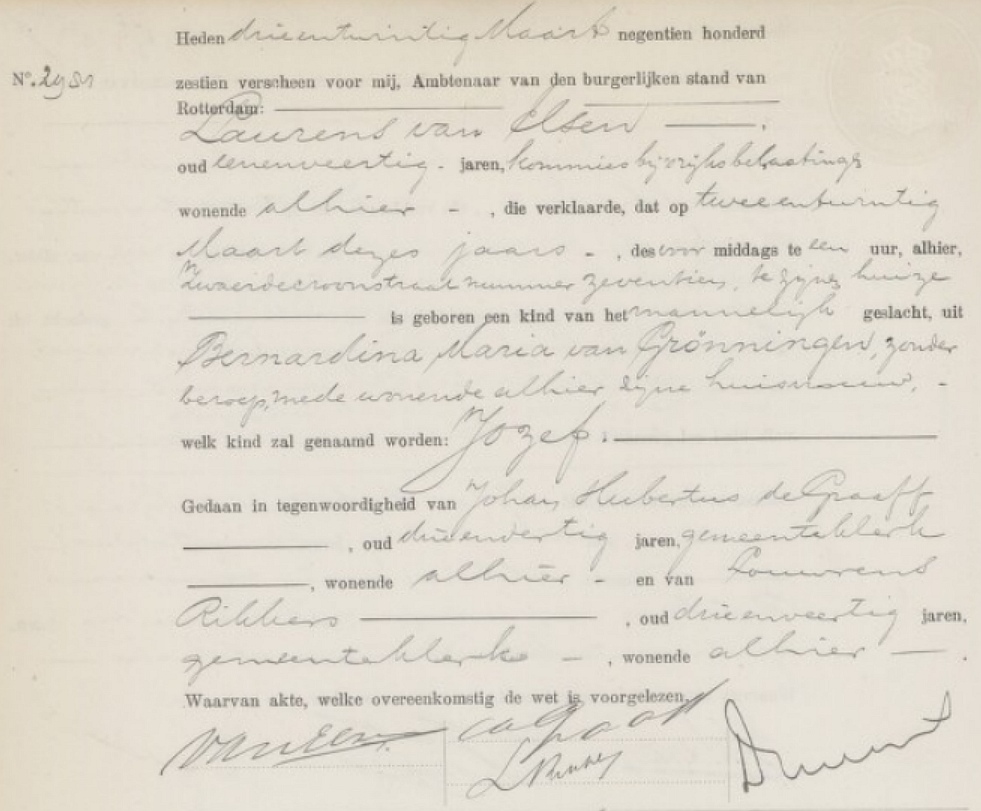 Heden drieentwintig Maart negentien honderd
No. 2981
zestien verscheen voor mij, Ambtenaar van den burgerlijken stand van
Rotterdam:
Laurens van Elsen
oud eenenveertig jaren, kommies bij 'srijksbelastingen
wonende alhier, die verklaarde, dat op tweeentwintig
Maart dezes jaars, des voor middags te een uur, alhier,
Zwaerdecroonstraat nummer zeventien, te zijnen huize
is geboren een kind van het mannelijk geslacht, uit
Bernardina Maria van Grönningen, zonder
beroep, mede wonende alhier zijne huisvrouw,
welk kind zal genaamd worden: Jozef.
Gedaan in tegenwoordigheid van Johan Hubertus de Graaff
, oud drieendertig jaren, gemeenteklerk
, wonende alhier en van Louwrens
Rikkers, oud drieenveertig jaren,
gemeenteklerk, wonende alhier.
Waarvan akte, welke overeenkomstig de wet is voorgelezen,